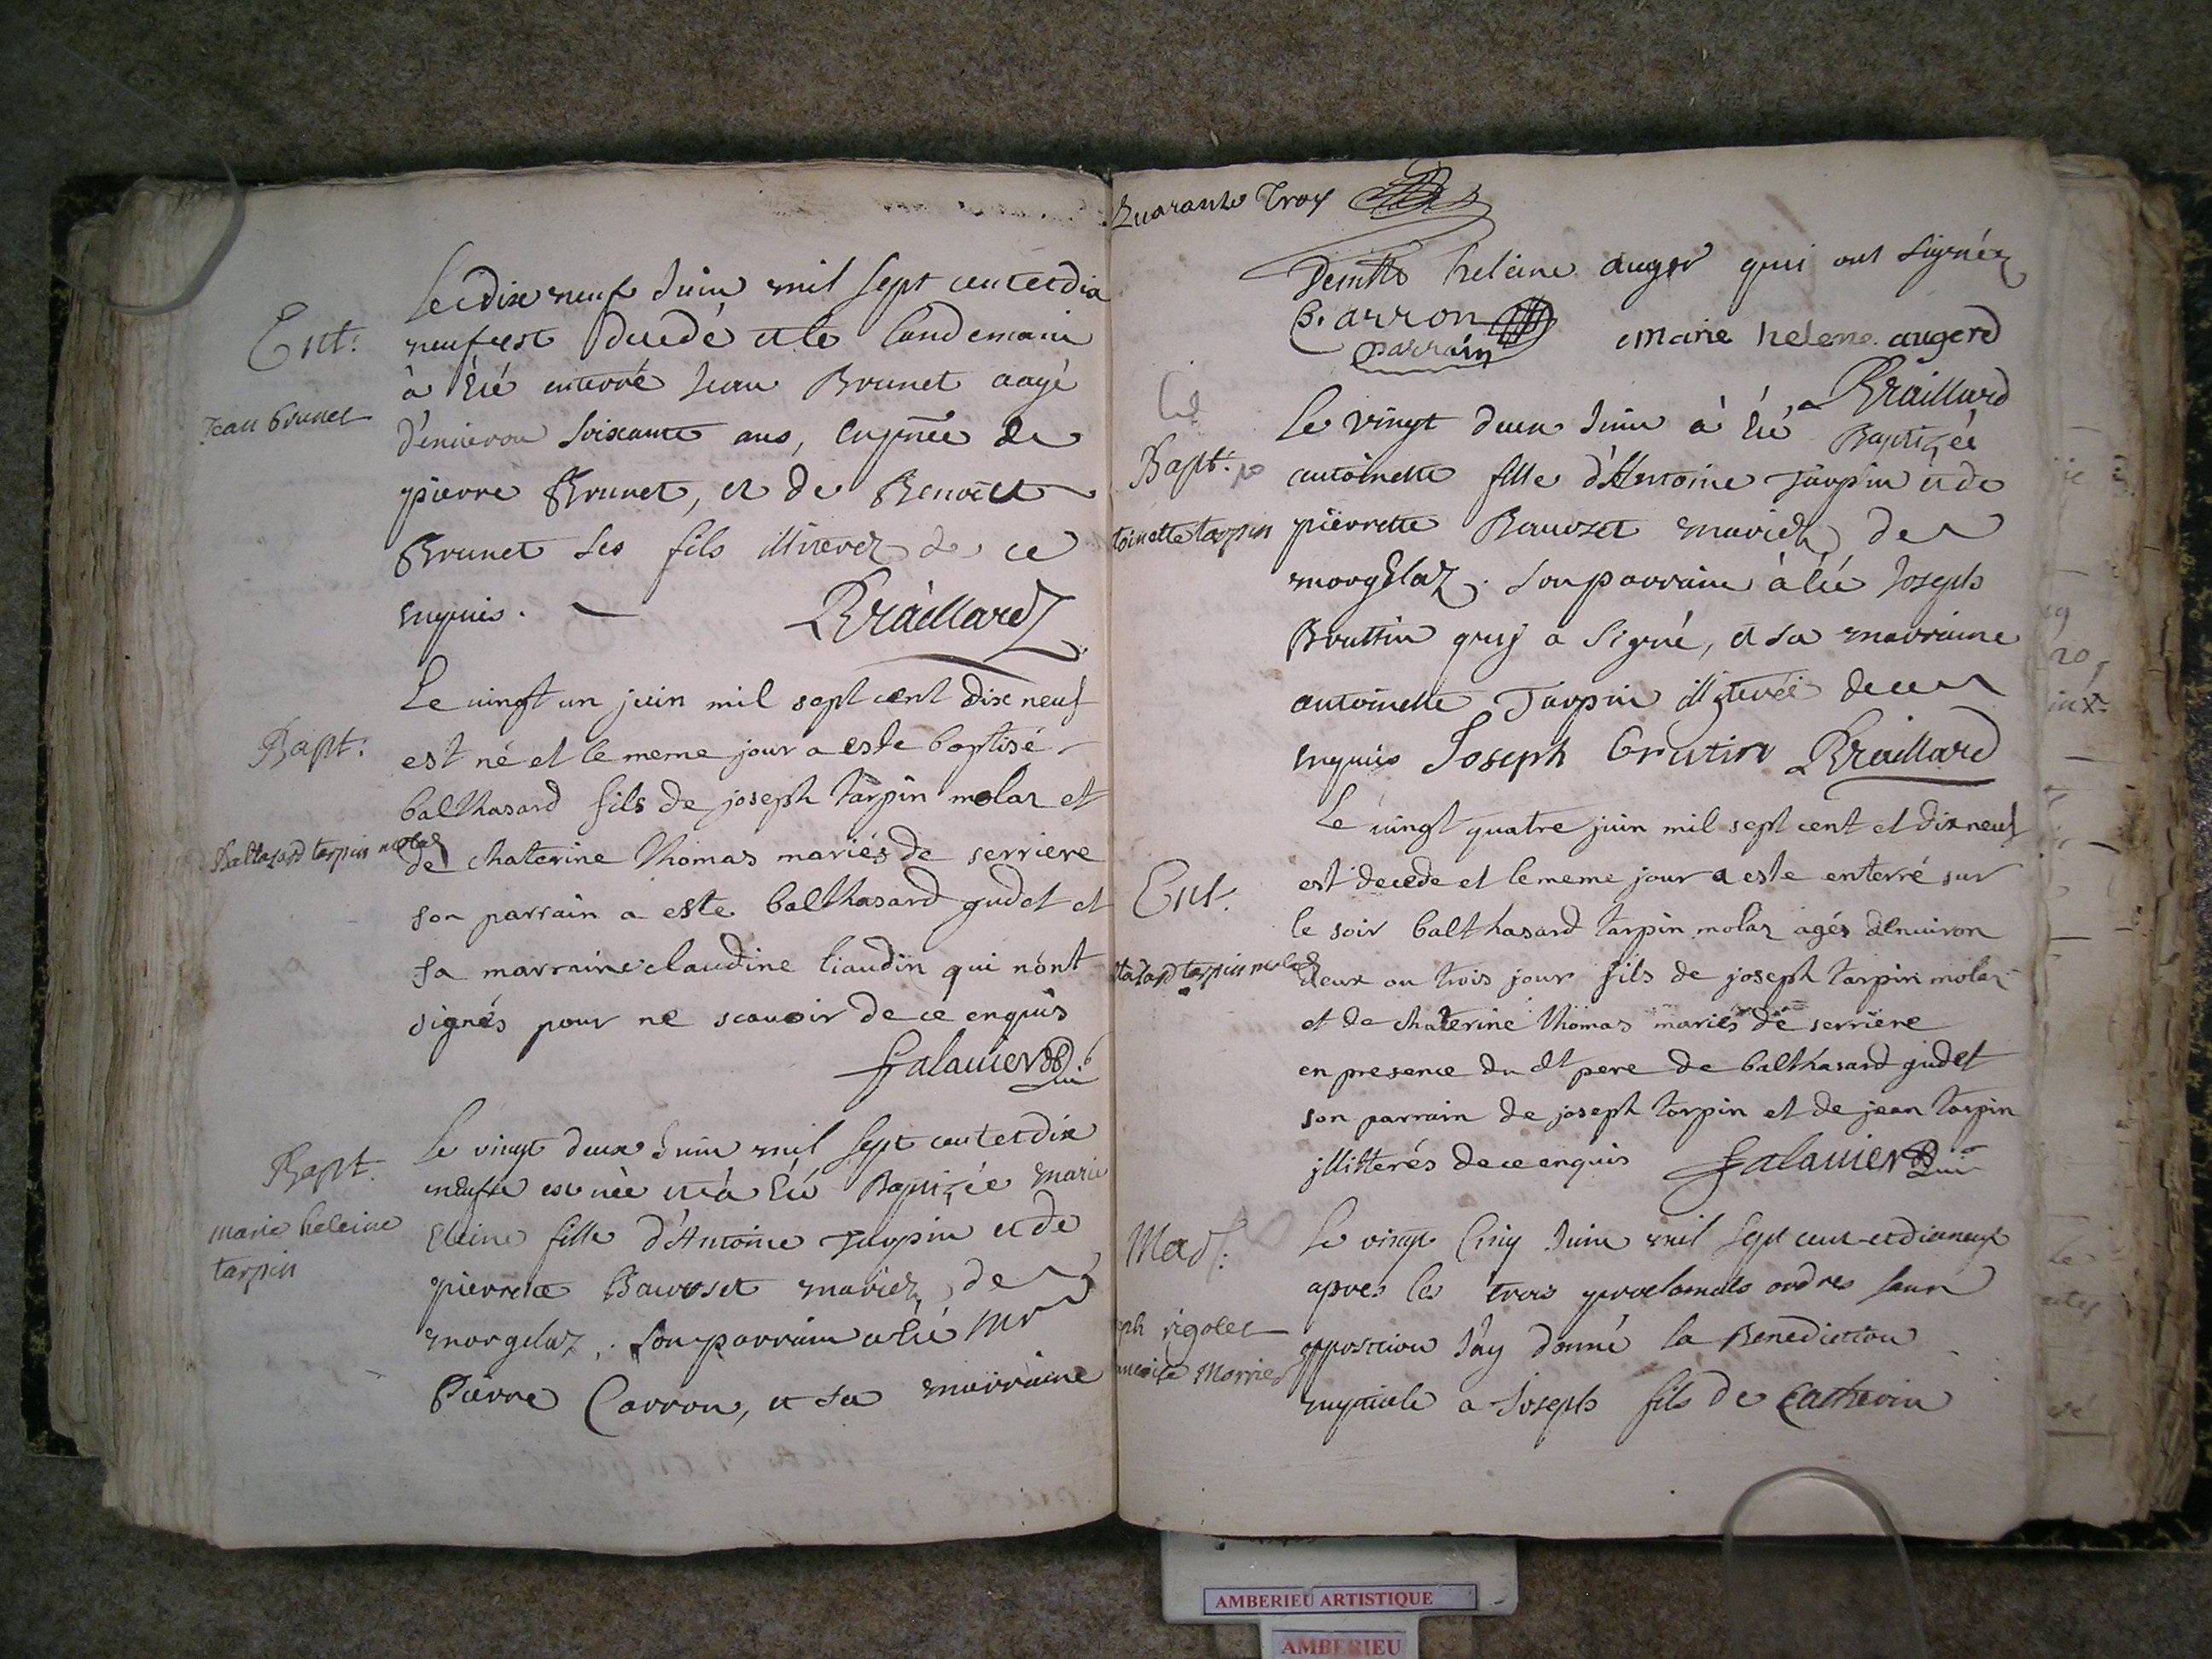 Ent:
Jean brunet
Le dix neuf Juin mil sept cent et dix
neuf est decedé et le landemain
à été enterré Jean Brunet aagé
d'enuiron soixante ans, en pnce de
pierre Brunet, et de Benoict
Brunet ses fils illiterez de ce
enquis. Braillard
Bapt:
Baltazard tarpin molaz
Le uingt un juin mil sept cent dix neuf
est né et le meme jour a este baptisé
balthasard fils de joseph tarpin molaz et
de chaterine thomas mariés de serriere
son parrain a este balthasard gudet et
sa marraine claudine liaudin qui n'ont
signés pour ne scauoir de ce enquis
falauier
Bapt.
marie heleine
tarpin
Le vingt deux Juin mil sept cent et dix
neufu est née et à été Baptizée marie
eleine fille d'Antoine Tarpin et de
pierrette Bauoset mariez de
morgelaz, son parrain a été Mr
Pierre Carron, et sa marraine
Quarante Troy
Demlle heleine auger qui ont signéz
C. arron
parrain
marie helene augerd
Braillard
Bapt:
toinette tarpin
Le vingt deux Juin à été Baptizée
antoinette fille d'Antoine Tarpin et de
pierrette Bauozet mariez de
morgelaz. son parrain à été Joseph
Bruttin quy a signé, et sa marraine
antoinette Tarpin illiterée de ce
enquis Joseph brutin Braillard
Ent.
tazard tarpin molaz
Le uingt quatre juin mil sept cent et dix neuf
est decede et le meme jour a este enterré sur
le soir balthasard tarpin molaz agés d'enuiron
deux ou trois jour fils de joseph tarpin molaz
et de chaterine thomas mariés de serriere
en presence du dt pere de balthasard gudet
son parrain de joseph tarpin et de jean tarpin
jllitterés de ce enquis falauier
Mad:
ph rigolet
Morrier
Le vingt Cinq Juin mil sept cent et dixneuf
apres les trois proclamats ordres sans
opposition J'ay donné la Benediction
nuptiale a Joseph fils de Catherin
AMBERIEU ARTISTIQUE
AMBERIEU